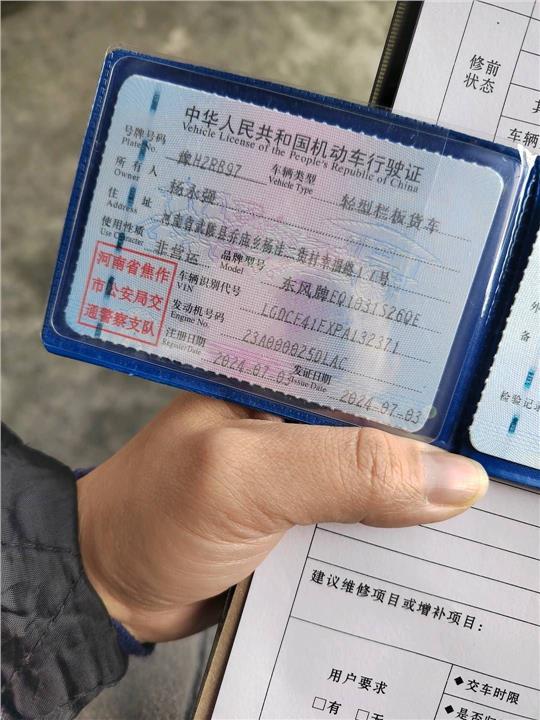 中华人民共和国机动车行驶证
Vehicle License of the People's Republic of China
号牌号码 豫H2RB97 车辆类型 轻型栏板货车
Plate No. Vehicle Type
所有人 杨永强
Owner
住址 河南省武陟县乔庙
Address
使用性质 非营运 品牌型号 东风牌EQ1031S26QE
Use Character Model
车辆识别代号 LGDCF41FXPA132371
VIN
发动机号码 23A000025DLAC
Engine No.
注册日期 2024-07-03 发证日期 2024-07-03
Register Date Issue Date
河南省焦作
市公安局交
通警察支队
修前
状态
车辆
备
检验记录
建议维修项目或增补项目:
用户要求
□有 □无
◆交车时限